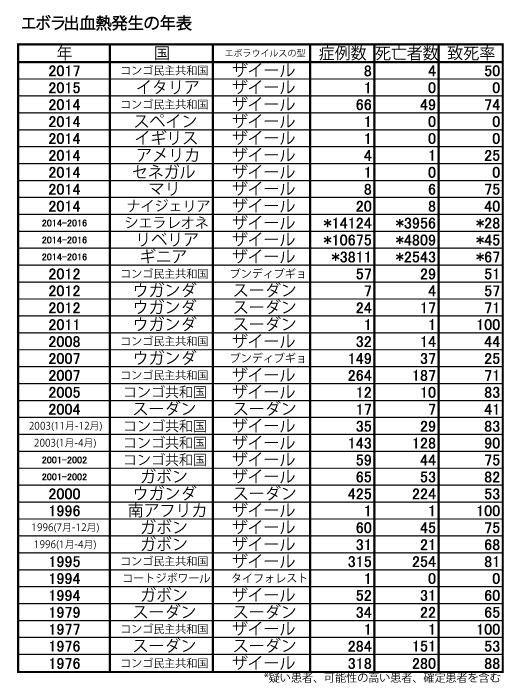 エボラ出血熱発生の年表
年 国 エボラウイルスの型 症例数 死亡者数 致死率
2017 コンゴ民主共和国 ザイール 8 4 50
2015 イタリア ザイール 1 0 0
2014 コンゴ民主共和国 ザイール 66 49 74
2014 スペイン ザイール 1 0 0
2014 イギリス ザイール 1 0 0
2014 アメリカ ザイール 4 1 25
2014 セネガル ザイール 1 0 0
2014 マリ ザイール 8 6 75
2014 ナイジェリア ザイール 20 8 40
2014-2016 シエラレオネ ザイール *14124 *3956 *28
2014-2016 リベリア ザイール *10675 *4809 *45
2014-2016 ギニア ザイール *3811 *2543 *67
2012 コンゴ民主共和国 ブンディブギョ 57 29 51
2012 ウガンダ スーダン 7 4 57
2012 ウガンダ スーダン 24 17 71
2011 ウガンダ スーダン 1 1 100
2008 コンゴ民主共和国 ザイール 32 14 44
2007 ウガンダ ブンディブギョ 149 37 25
2007 コンゴ民主共和国 ザイール 264 187 71
2005 コンゴ共和国 ザイール 12 10 83
2004 スーダン スーダン 17 7 41
2003(11月-12月) コンゴ共和国 ザイール 35 29 83
2003(1月-4月) コンゴ共和国 ザイール 143 128 90
2001-2002 コンゴ共和国 ザイール 59 44 75
2001-2002 ガボン ザイール 65 53 82
2000 ウガンダ スーダン 425 224 53
1996 南アフリカ ザイール 1 1 100
1996(7月-12月) ガボン ザイール 60 45 75
1996(1月-4月) ガボン ザイール 31 21 68
1995 コンゴ民主共和国 ザイール 315 254 81
1994 コートジボワール タイフォレスト 1 0 0
1994 ガボン ザイール 52 31 60
1979 スーダン スーダン 34 22 65
1977 コンゴ民主共和国 ザイール 1 1 100
1976 スーダン スーダン 284 151 53
1976 コンゴ民主共和国 ザイール 318 280 88
*疑い患者、可能性の高い患者、確定患者を含む